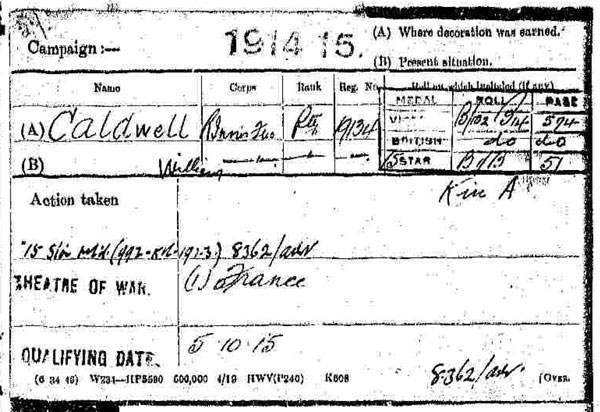 Campaign :— 1914 15. (A) Where decoration was earned.
(B) Present situation.
Name Corps Rank Reg. No. Roll on which included (if any)
MEDAL ROLL PAGE
(A) Caldwell R. Innis Fus Pte 19134 VI B/102 574
BRITISH do do
(B) William STAR 51
Action taken
8362/adv
THEATRE OF WAR. (1) France
QUALIFYING DATE. 5 10 15
(6 34 46) W234—HP5590 500,000 4/19 HWV(P240) K608 8362/adv. [OVER.